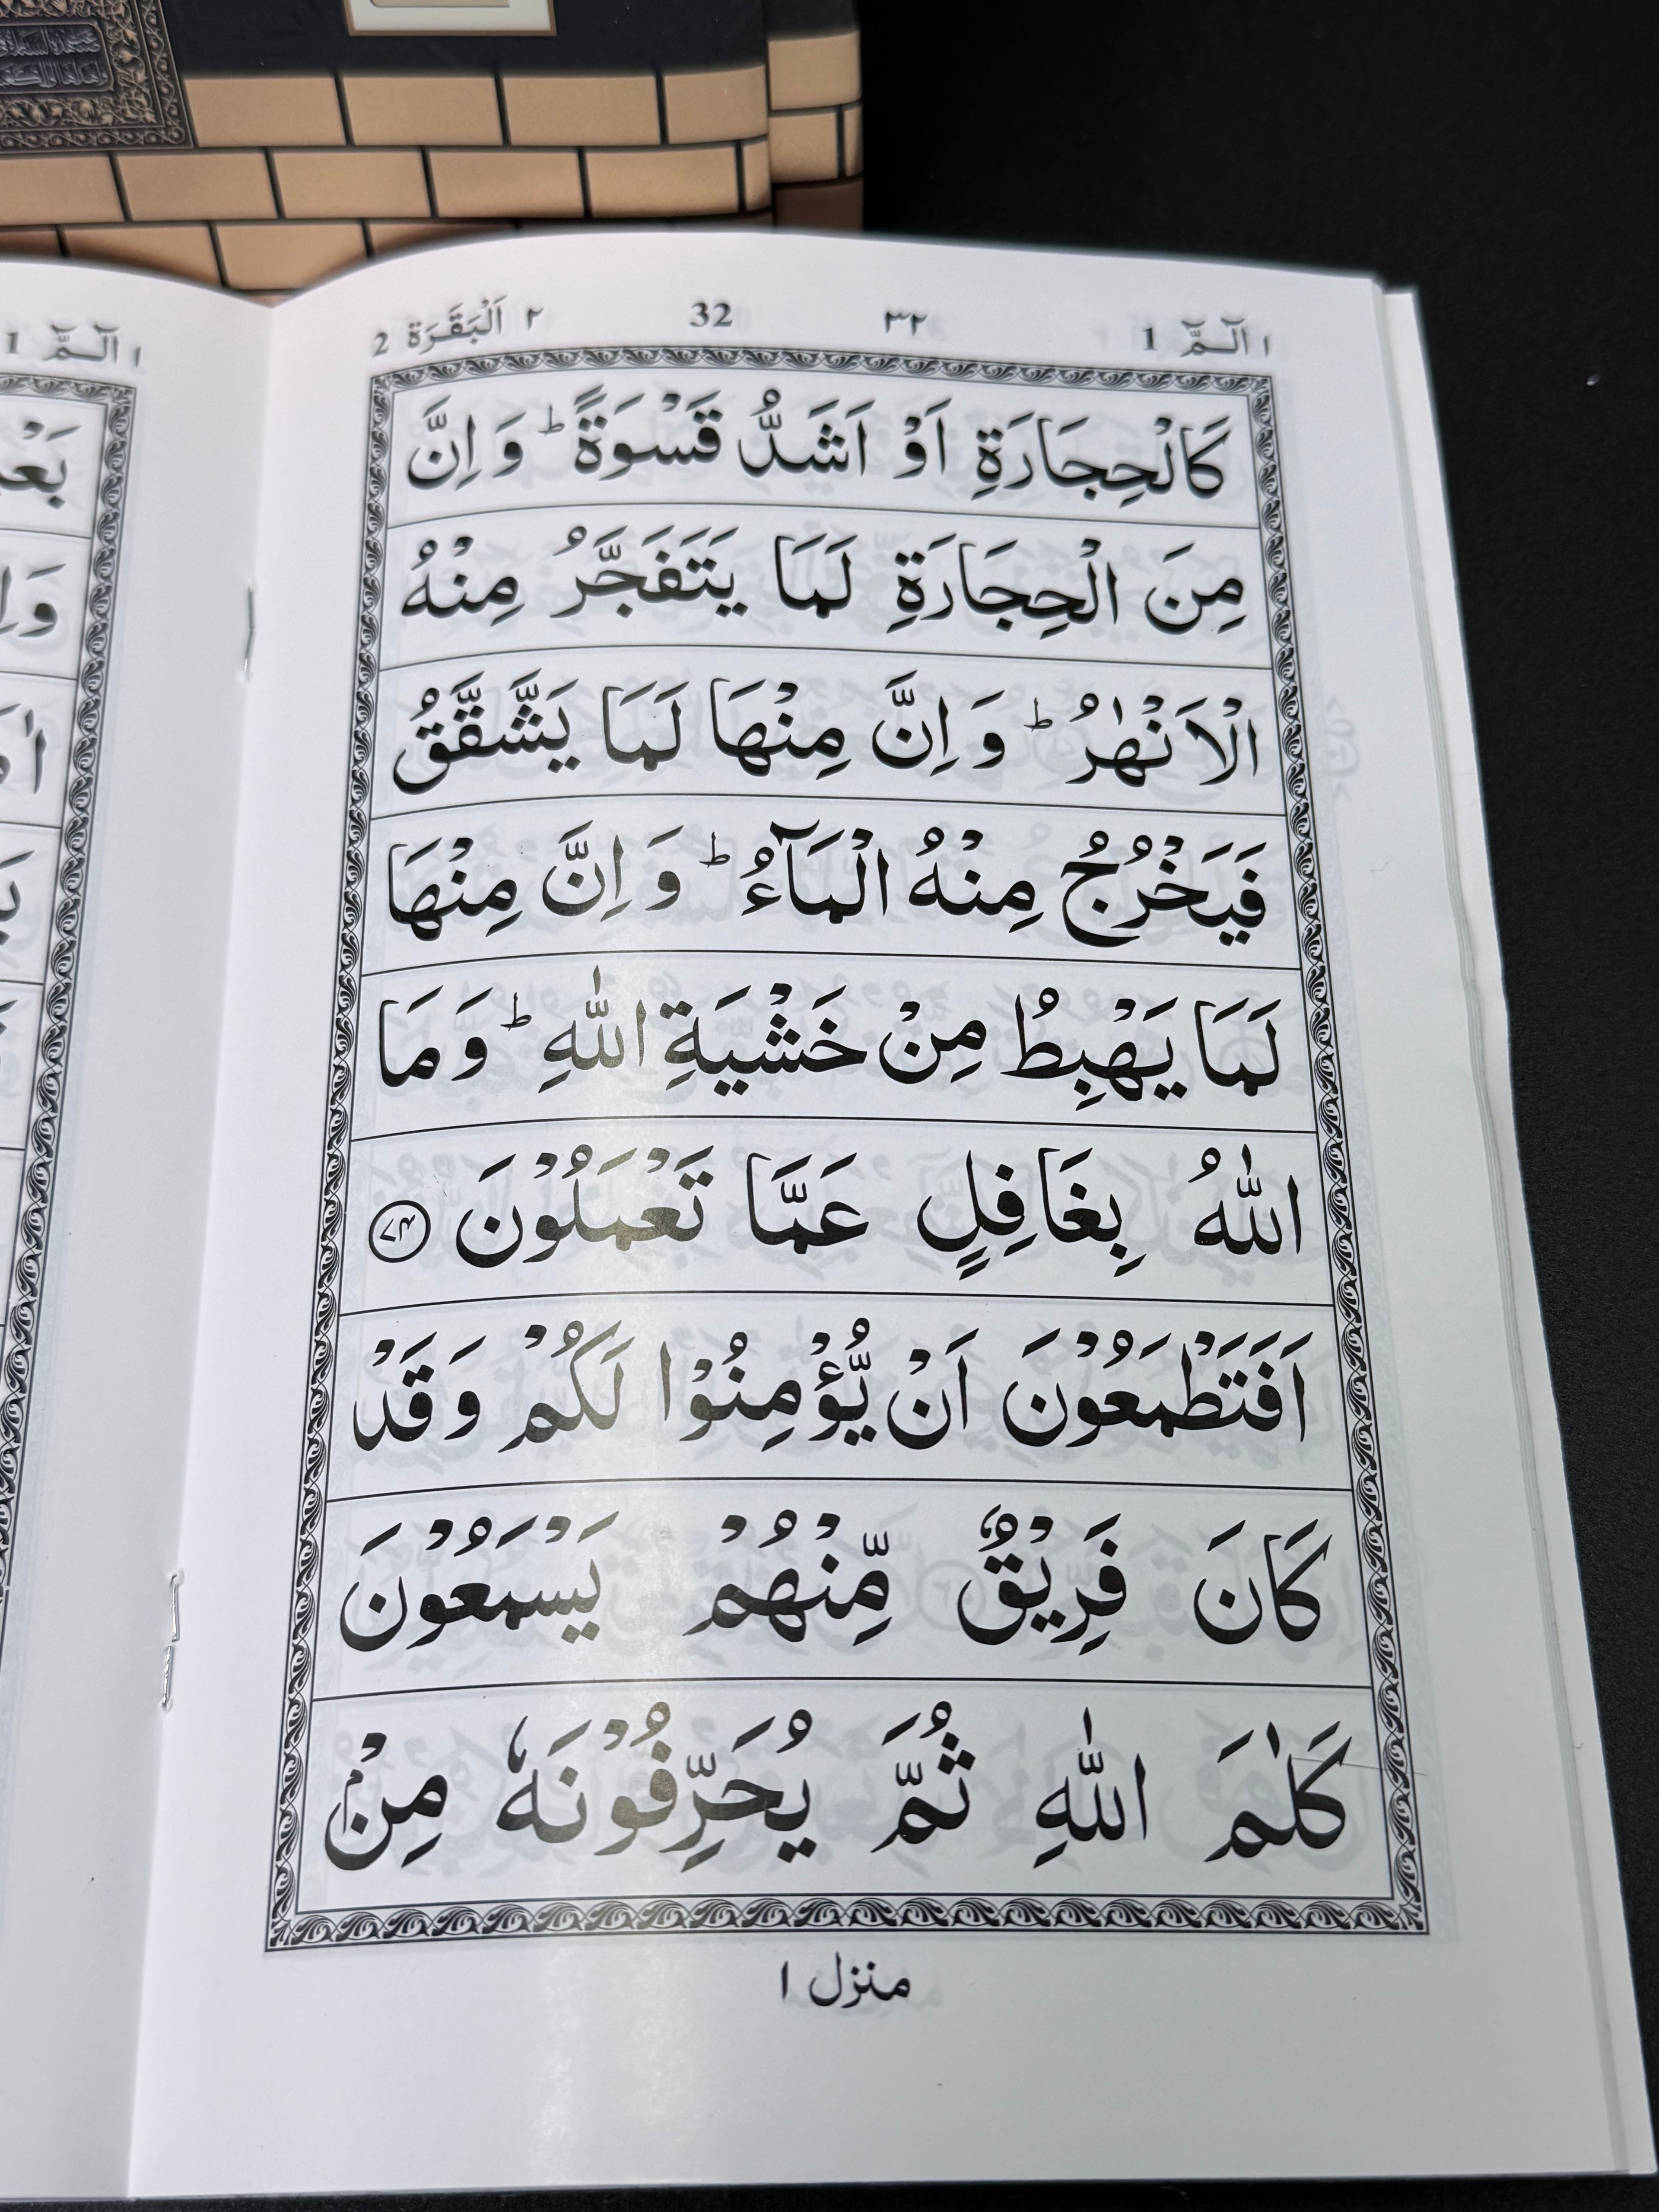 ١ الٓـمّٓ 1 ٣٢ 32 ٢ اَلْبَقَرَة 2
كَالْحِجَارَةِ اَوْ اَشَدُّ قَسْوَةً ؕ وَ اِنَّ
مِنَ الْحِجَارَةِ لَمَا يَتَفَجَّرُ مِنْهُ
الْاَنْهٰرُ ؕ وَ اِنَّ مِنْهَا لَمَا يَشَّقَّقُ
فَيَخْرُجُ مِنْهُ الْمَآءُ ؕ وَ اِنَّ مِنْهَا
لَمَا يَهْبِطُ مِنْ خَشْيَةِ اللّٰهِ ؕ وَ مَا
اللّٰهُ بِغَافِلٍ عَمَّا تَعْمَلُوْنَ ﴿۷۴﴾
اَفَتَطْمَعُوْنَ اَنْ يُّؤْمِنُوْا لَكُمْ وَ قَدْ
كَانَ فَرِيْقٌ مِّنْهُمْ يَسْمَعُوْنَ
كَلٰمَ اللّٰهِ ثُمَّ يُحَرِّفُوْنَهٗ مِنْۢ
منزل ١
١ الٓـمّٓ 1